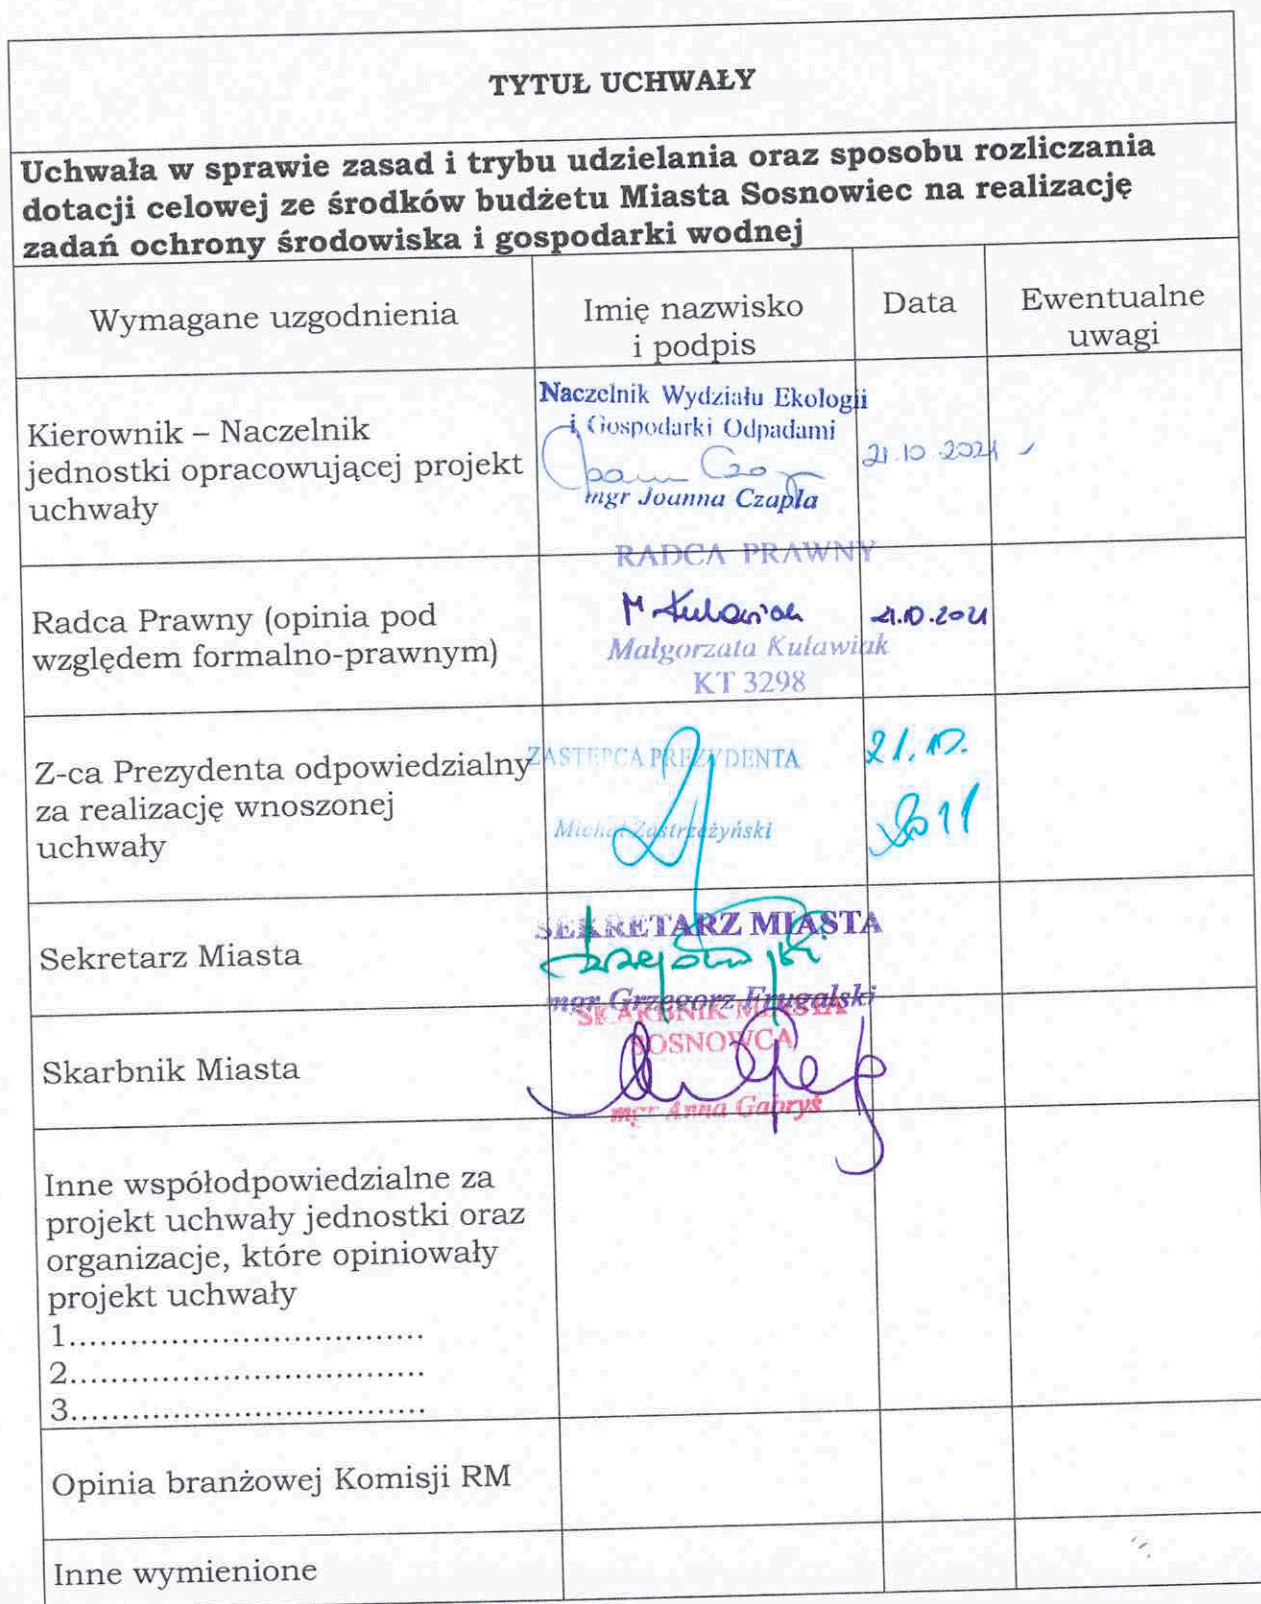 TYTUŁ UCHWAŁY
Uchwała w sprawie zasad i trybu udzielania oraz sposobu rozliczania
dotacji celowej ze środków budżetu Miasta Sosnowiec na realizację
zadań ochrony środowiska i gospodarki wodnej
Wymagane uzgodnienia
Imię nazwisko
i podpis
Data
Ewentualne
uwagi
Kierownik – Naczelnik
jednostki opracowującej projekt
uchwały
Naczelnik Wydziału Ekologii
i Gospodarki Odpadami
mgr Joanna Czapla
21.10.2021
Radca Prawny (opinia pod
względem formalno-prawnym)
RADCA PRAWNY
M Kulawiak
Małgorzata Kulawiak
KT 3298
21.10.2021
Z-ca Prezydenta odpowiedzialny
za realizację wnoszonej
uchwały
ZASTĘPCA PREZYDENTA
Michał Zastrzeżyński
21.10.
Sekretarz Miasta
SEKRETARZ MIASTA
mgr Grzegorz Frugalski
Skarbnik Miasta
SKARBNIK MIASTA
SOSNOWCA
mgr Anna Gabryś
Inne współodpowiedzialne za
projekt uchwały jednostki oraz
organizacje, które opiniowały
projekt uchwały
1...................................
2...................................
3...................................
Opinia branżowej Komisji RM
Inne wymienione